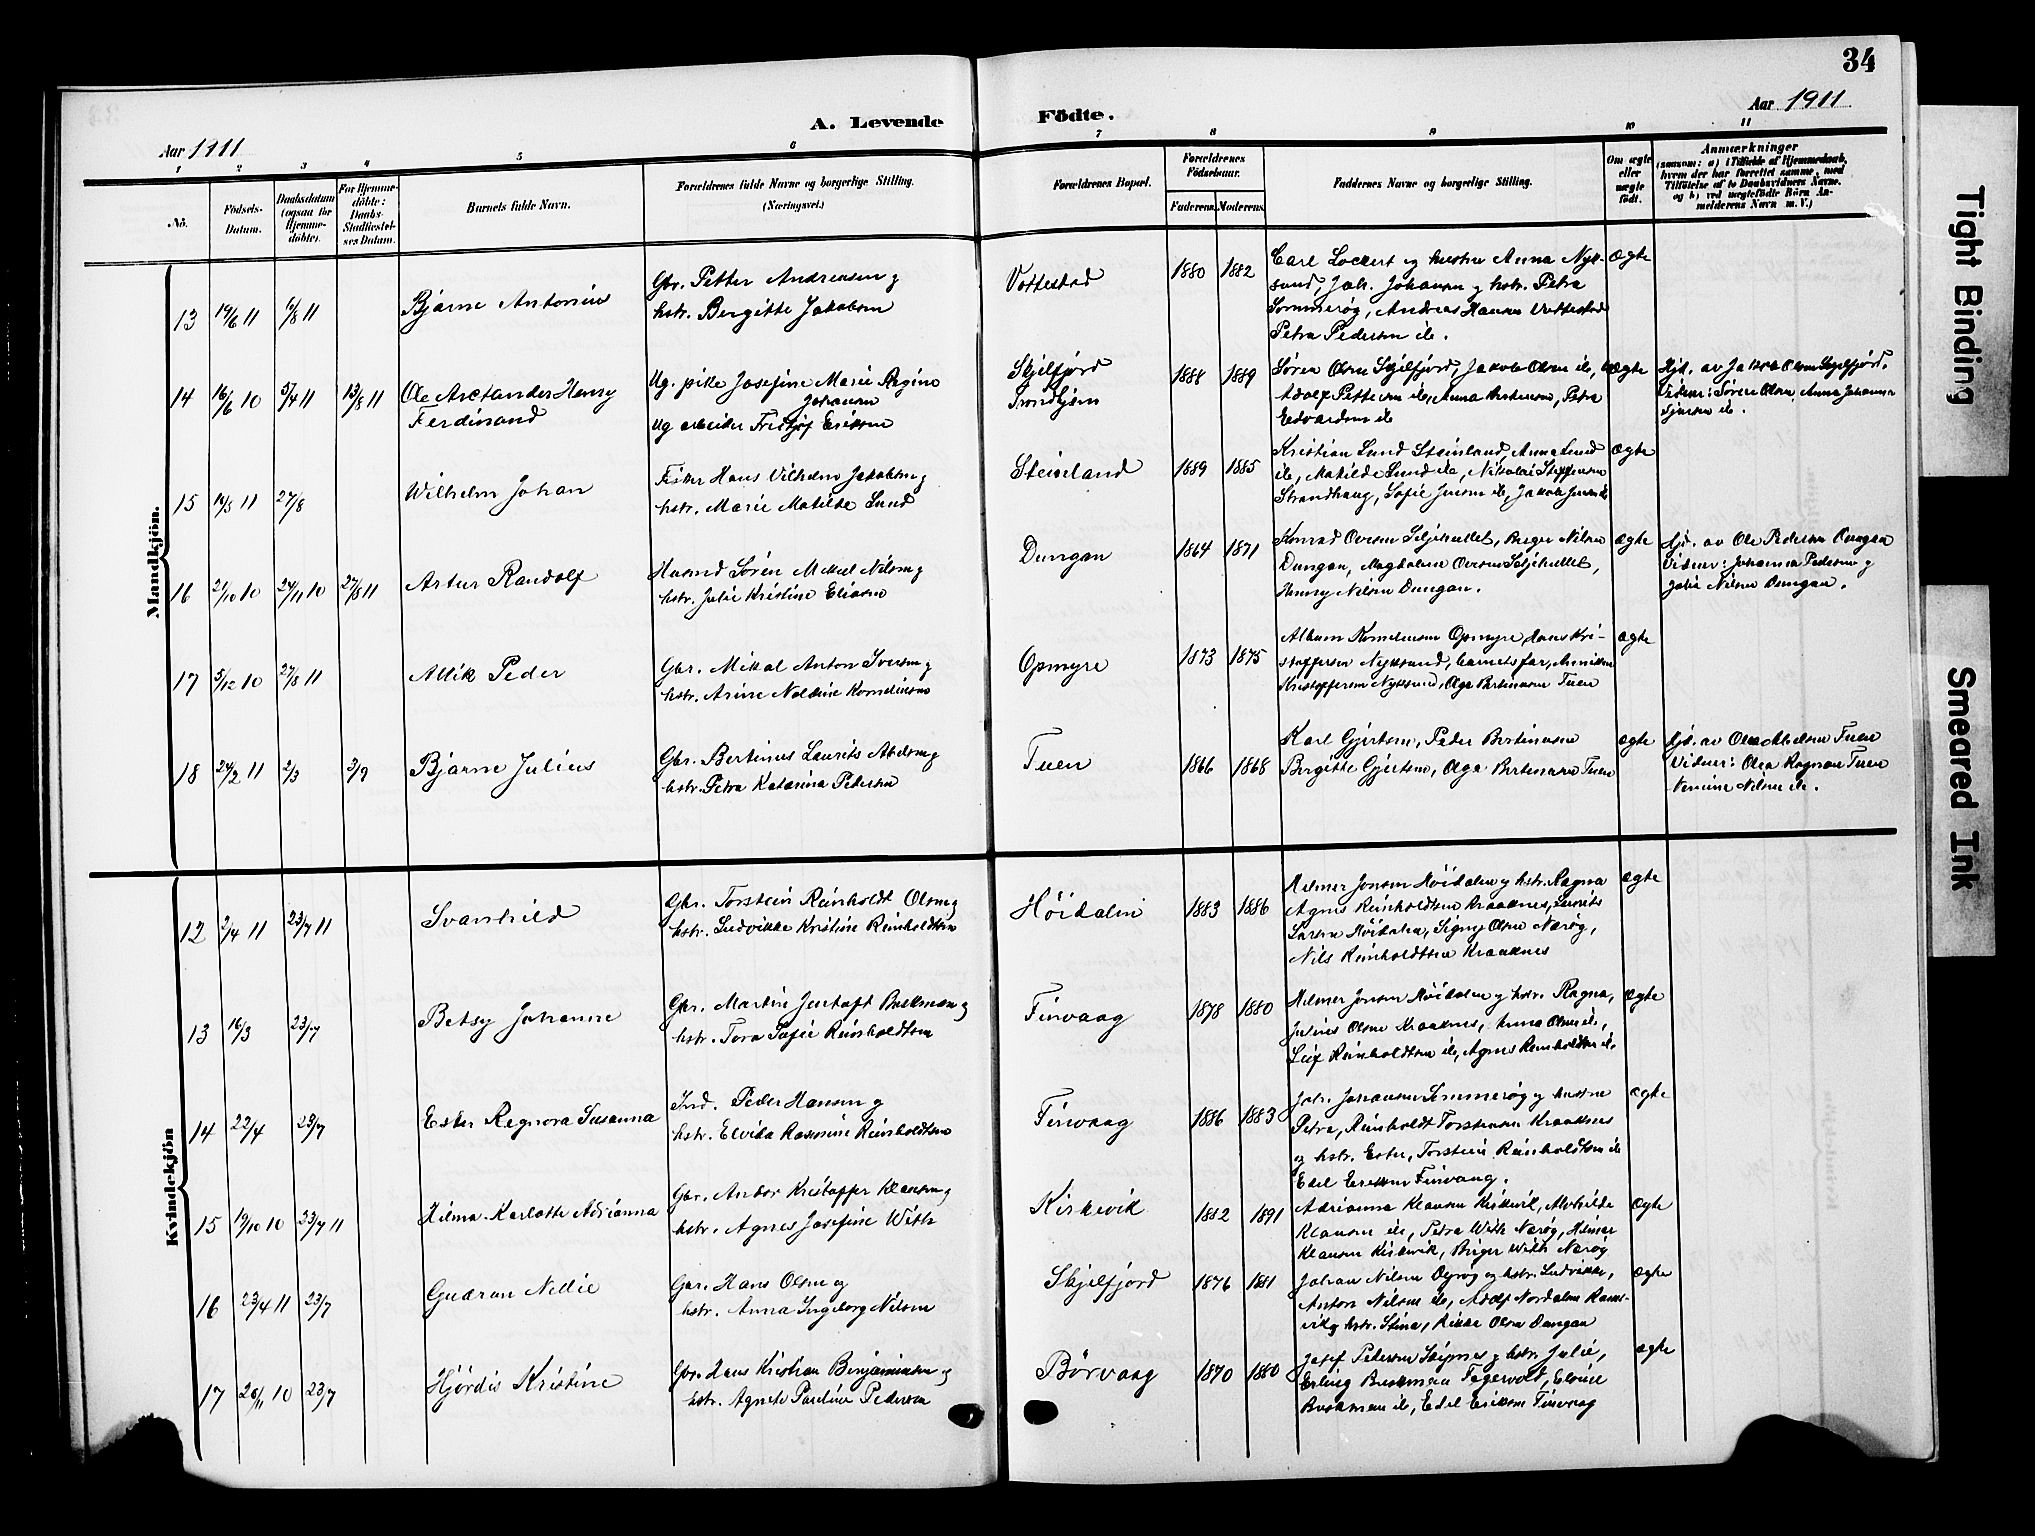 34
Aar 1911
A. Levende
Födte.
Aar 1911
1 2 3 4 5 6 7 8 9 10 11
No.
Födsels-
Datum.
Daabsdatum
(ogsaa for
Hjemme-
döbte).
For Hjemme-
döbte:
Daabs-
Stadfæstel-
ses Datum.
Barnets fulde Navn.
Forældrenes fulde Navne og borgerlige Stilling.
(Næringsvei.)
Forældrenes Bopæl.
Forældrenes
Födselsaar.
Faderens. Moderens.
Faddernes Navne og borgerlige Stilling.
Om ægte
eller
uægte
födt.
Anmærkninger
(saasom: a) i Tilfælde af Hjemmedaab,
hvem der har forrettet samme, med
Tilföielse af to Daabsvidners Navne,
og b) ved uægtefödte Börn An-
melderens Navn m. V.)
Mandkjön.
13 19/6 11 6/8 11
Bjarne Antonius
Gbr. Petter Andreasen og
hstr. Bergitte Jakobsen
Vottestad
1880 1882
Carl Lockert og hustru Anna Nyk-
sund, Joh. Johansen og hstr. Petra
Sommerøg, Andreas Hansen Vottestad
Petra Pedersen ib.
ægte
14 16/6 10 5/4 11 13/8 11
Ole Arctander Henry
Ferdinand
Ug. pike Josefine Marie Regine
Johansen
Ug arbeider Fredtjof Eriksen
Skjelfjord
Trondhjem
1888 1889
Søren Olsen Skjelfjord, Jakob Olsen ib,
Adolf Pettersen ib, Anna Antonsen, Petra
Edvardsen ib
uægte
Hjd. av Jakob Olsen Skjelfjord.
Vidner: Søren Olsen, Anna Johanne
ib.
15 14/5 11 27/8
Wilhelm Johan
Fisker Hans Vilhelm Jakobsen og
hstr. Marie Matilde Lund
Steinland
1889 1885
Kristian Lund Steinland, Anna Lund
ib, Matilde Lund ib, Nikolai Steffensen
Strandhaug, Sofie Jensen ib, Jakob Jensen ib
ægte
16 21/10 10 24/11 10 27/8 11
Artur Randolf
Husmd Søren Mikal Nilsen og
hstr. Julie Kristine Eliasen
Dungan
1864 1871
Konrad Oversen Seljehullet, Birger Nilsen
Dungan, Magdalene Oversen Seljehullet,
Henry Nilsen Dungan.
ægte
Hjd. av Ole Pedersen Dungan
Vidner: Johanna Pedersen og
Julie Nilsen Dungan.
17 5/12 10 27/8 11
Alfik Peder
Gbr. Mikal Anton Iversen og
hstr. Arine Noldine Korneliusen
Opmyre
1873 1875
Albert Korneliusen Opmyre, Hans Kri-
stoffersen Nyksund, barnets far, Annikken
Kristoffersen Nyksund, Olga Bertinusen Tuen
ægte
18 24/2 11 2/3 3/9
Bjarne Julius
Gbr. Bertinus Laurits Abelsen og
hstr. Petra Katarina Pedersen
Tuen
1866 1868
Karl Gjertsen, Peder Bertinusen
Bergitte Gjertsen, Olga Bertinusen Tuen
ægte
Hjd. av Olea Abelsen Tuen
Vidner: Olea Ragnan Tuen
Nensine Nilsen ib.
Kvindekjön
12 2/4 11 23/7 11
Svanhild
Gbr. Torstein Reinholdt Olsen og
hstr. Ludvikke Kristine Reinholdtsen
Høidalen
1883 1886
Hilmer Jensen Høidalen og hstr. Ragna
Agnes Reinholdtsen Kraaknes, Laurits
Larsen Høidalen, Signy Olsen Nærøg,
Nils Reinholdtsen Kraaknes
ægte
13 16/3 23/7
Betsy Johanne
Gbr. Martin Jentoft Buskman og
hstr. Tora Sofie Reinholdtsen
Finvaag
1878 1880
Hilmer Jensen Høidalen og hstr. Ragna,
Julius Olsen Kraaknes, Anna Olsen ib,
Leif Reinholdtsen ib, Agnes Reinholdtsen ib.
ægte
14 22/4 23/7
Ester Regnora Susanna
Ind. Peder Hansen og
hstr. Elvida Rasmine Reinholdtsen
Finvaag
1886 1883
Joh. Johansen Sommerøg og hustru
Petra, Reinholdt Torstensen Kraaknes
og hstr. Ester, Torstein Reinholdtsen ib
Edel Eriksen Finvaag.
ægte
15 19/10 10 23/7 11
Hilma Karlotte Adrianna
Gbr. Antor Kristoffer Klausen og
hstr. Agnes Josefine With
Kirkevik
1882 1891
Adrianna Klausen Kirkevik, Alvhilde
Klausen ib, Petra With Nærøg, Helmer
Klausen Kirkevik, Birger With Nærøg
ægte
16 23/4 11 23/7
Gudrun Nelie
Gbr. Hans Olsen og
hstr. Anna Ingeborg Nilsen
Skjelfjord
1876 1881
Johan Nilsen og hstr. Ludvikke,
Anton Nilsen ib, Adolf Nordalen Rams-
vik og hstr. Stina, Rikke Olsen Dungan
ægte
17 20/11 10 23/7
Hjördis Kristine
Gbr. Hans Kristian Benjaminsen og
hstr. Agnete Pauline Pedersen
Börvaag
1870 1880
Josef Pedersen Skipnes og hstr. Julie,
Erling Buskman Fagervolt, Elvine
Buskman ib, Edel Eriksen Finvaag
ægte
Tight Binding
Smeared Ink